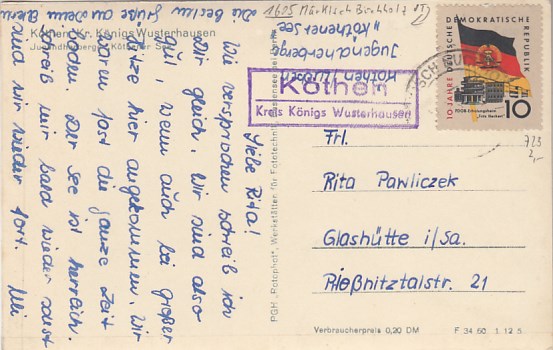 Köthen, Kr. Königs Wusterhausen
Jugendherberge Köthener See
Liebe Rita!
Wie versprochen schreib ich
Dir gleich. Wir sind also
gut, wenn auch bei großer
Hitze hier angekommen. Wir
waren fort die ganze Zeit
baden. Der See ist herrlich.
Schreib mir bald wieder sonst
sind wir wieder fort.
Die besten Grüße an Deine Eltern
1605 Märkisch Buchholz
Jugendherberge
Köthener See
Köthen
Kreis Königs Wusterhausen
10 JAHRE DEUTSCHE
DEMOKRATISCHE
REPUBLIK
10
723
2,-
Frl.
Rita Pawliczek
Glashütte i/Sa.
Prießnitztalstr. 21
PGH „Rotophot", Werkstätten für Fototechnik,
Verbraucherpreis 0,20 DM
F 34 60. 1. 12 5